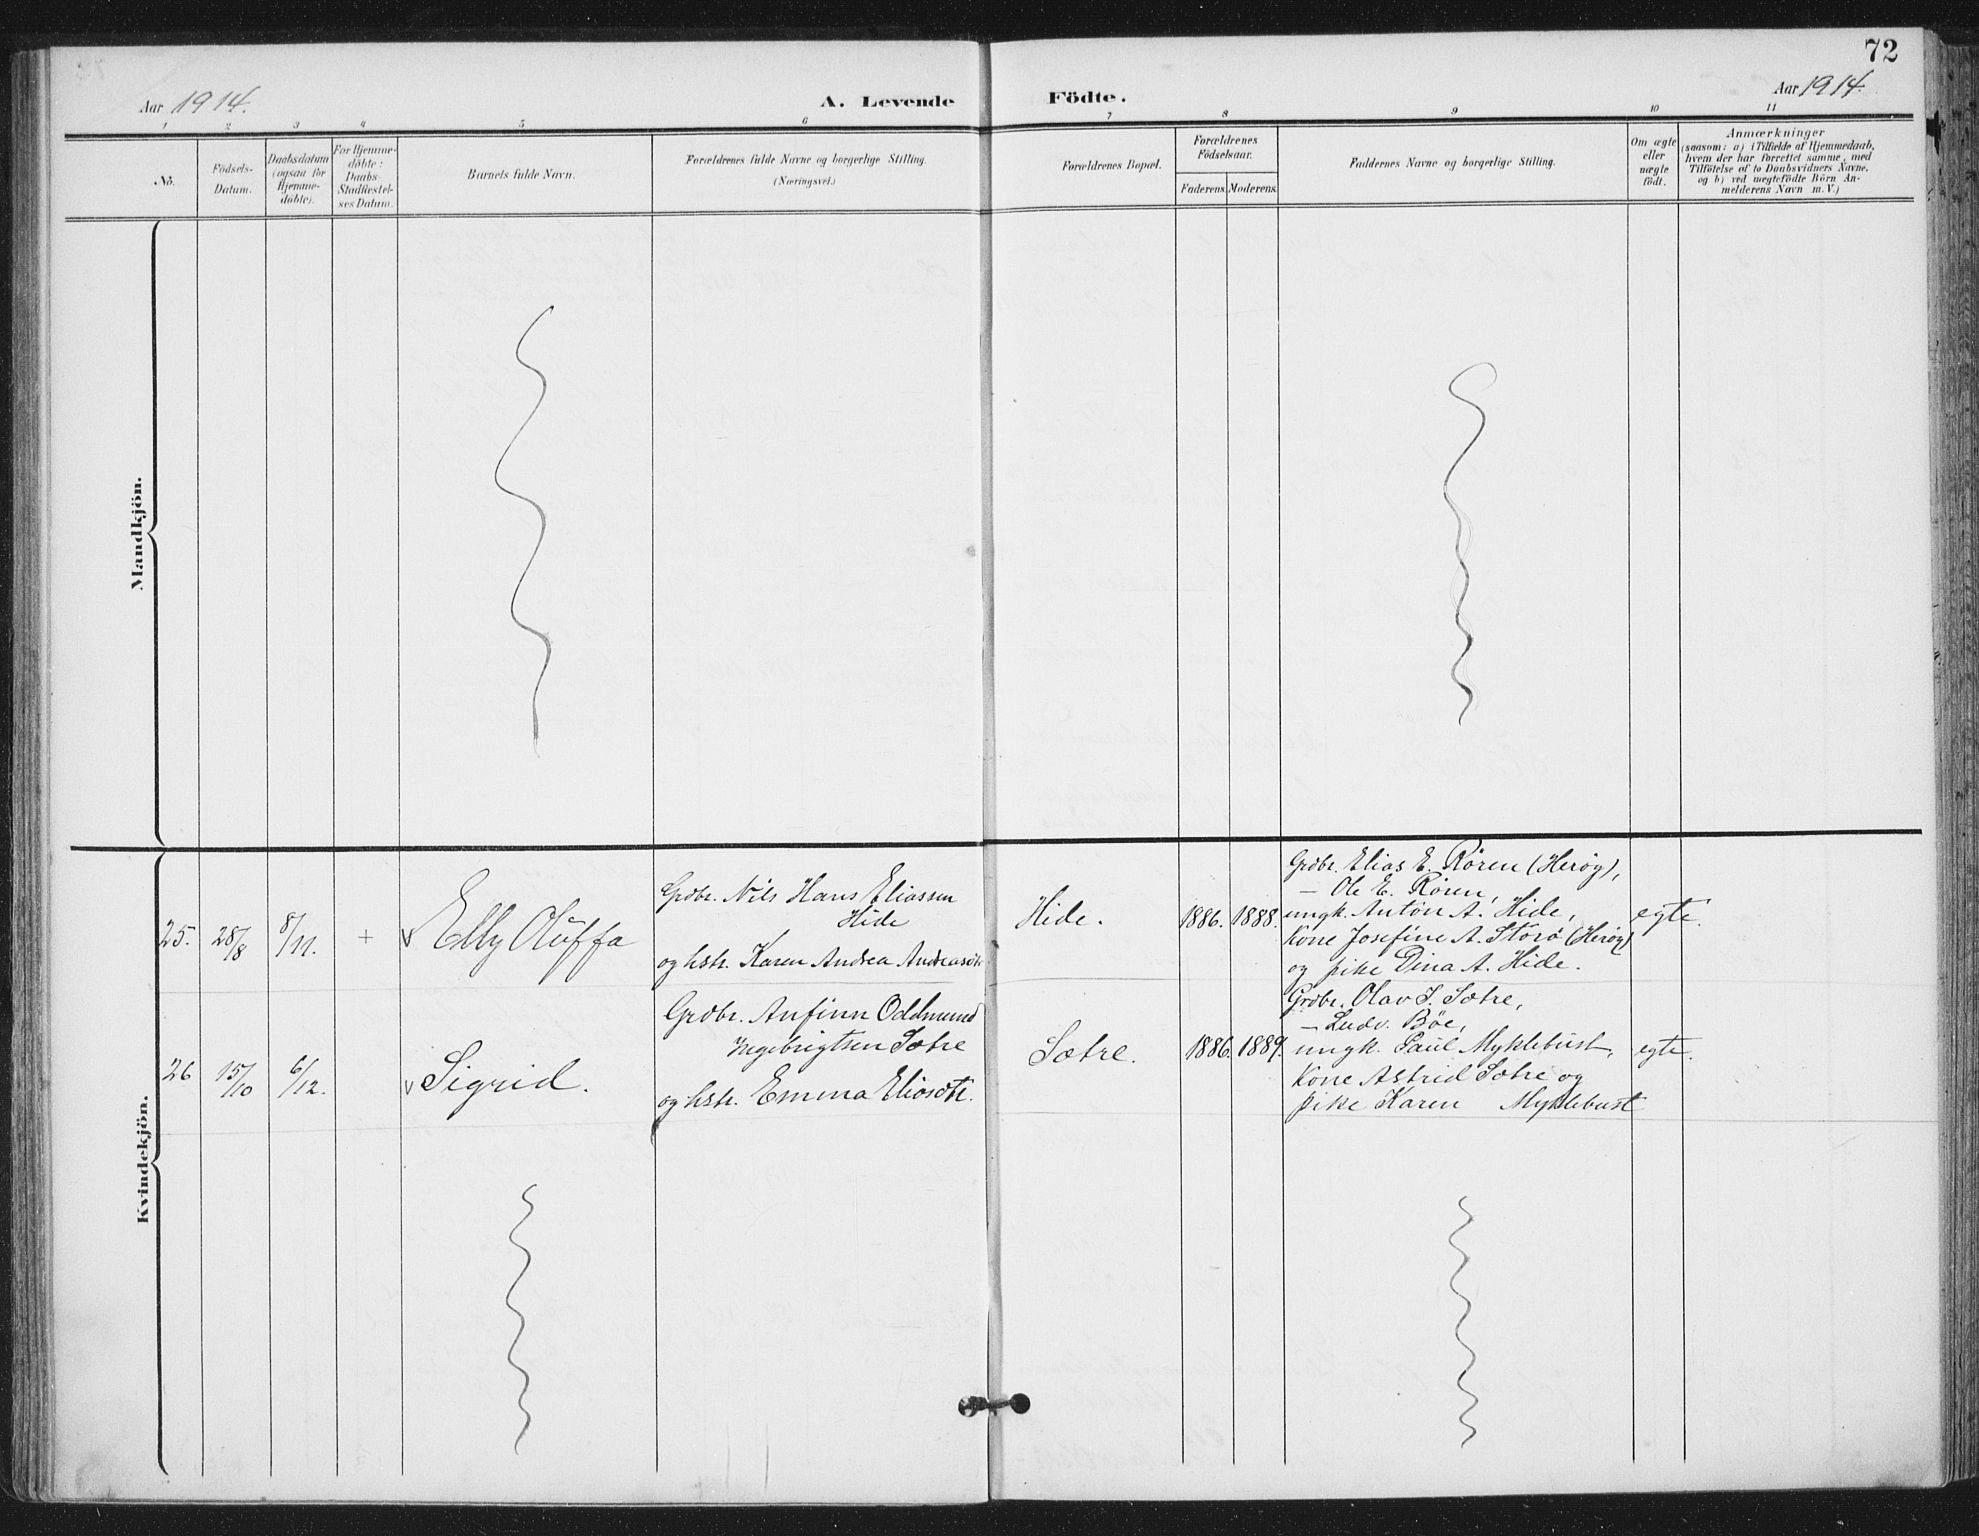 72
Aar 1914.
A. Levende Födte.
Aar 1914.
1 2 3 4 5 6 7 8 9 10 11
No.
Födsels-
Datum.
Daabsdatum
(ogsaa for
Hjemme-
döbte).
For Hjemme-
döbte:
Daabs-
Stadfæstel-
ses Datum.
Barnets fulde Navn.
Forældrenes fulde Navne og borgerlige Stilling.
(Næringsvei.)
Forældrenes Bopæl.
Forældrenes
Födselsaar.
Faderens. Moderens.
Faddernes Navne og borgerlige Stilling.
Om ægte
eller
uægte
födt.
Anmærkninger
(saasom: a) i Tilfælde af Hjemmedaab,
hvem der har forrettet samme, med
Tilföielse af to Daabsvidners Navne.
og b) ved uægtefödte Börn An-
melderens Navn m. V.)
Mandkjön.
Kvindekjön.
25. 28/8 8/11. + v Elly Oluffa
Grdbr. Nils Hans Eliassen
Hide
og hstr. Karen Andrea Andreasdtr
Hide.
1886. 1888.
Grdbr. Elias E. Røren (Herøy),
— Ole E. Røren,
ungk. Anton A. Hide,
Kone Josefine A. Storø (Herøy)
og pike Dina A. Hide.
egte.
26 15/10 6/12. v Sigrid.
Grdbr. Anfinn Oddmund
Ingebrigtsen Sætre
og hstr. Emma Eliasdtr.
Sætre.
1886. 1889.
Grdbr. Olav I. Sætre,
— Ludv. Bøe,
ungk. Paul Myklebust,
Kone Astrid Sætre og
pike Karen Myklebust
egte.